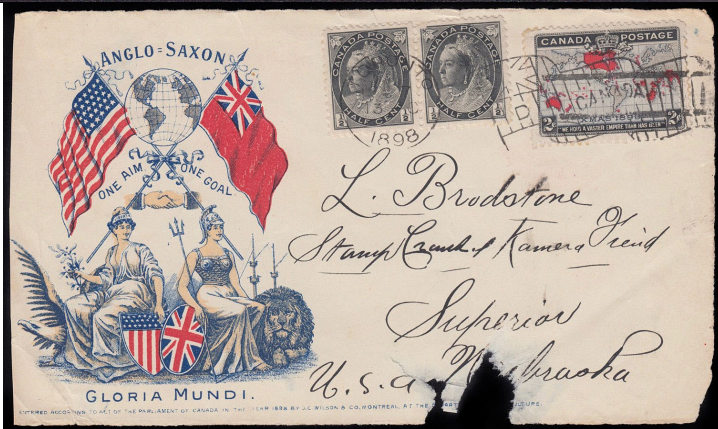 ANGLO=SAXON
ONE AIM ONE GOAL
GLORIA MUNDI.
ENTERED ACCORDING TO ACT OF THE PARLIAMENT OF CANADA IN THE YEAR 1898 BY J.C. WILSON & CO. MONTREAL, AT THE DEPARTM CULTURE.
CANADA POSTAGE
HALF CENT
CANADA POSTAGE
HALF CENT
13
1898
CANADA POSTAGE
CANADA
XMAS 1898
2c 2c
"WE HOLD A VASTER EMPIRE THAN HAS BEEN"
L. Brodstone
Stamp Crank & Kamera Fiend
Superior
Nebraska
U.S.a